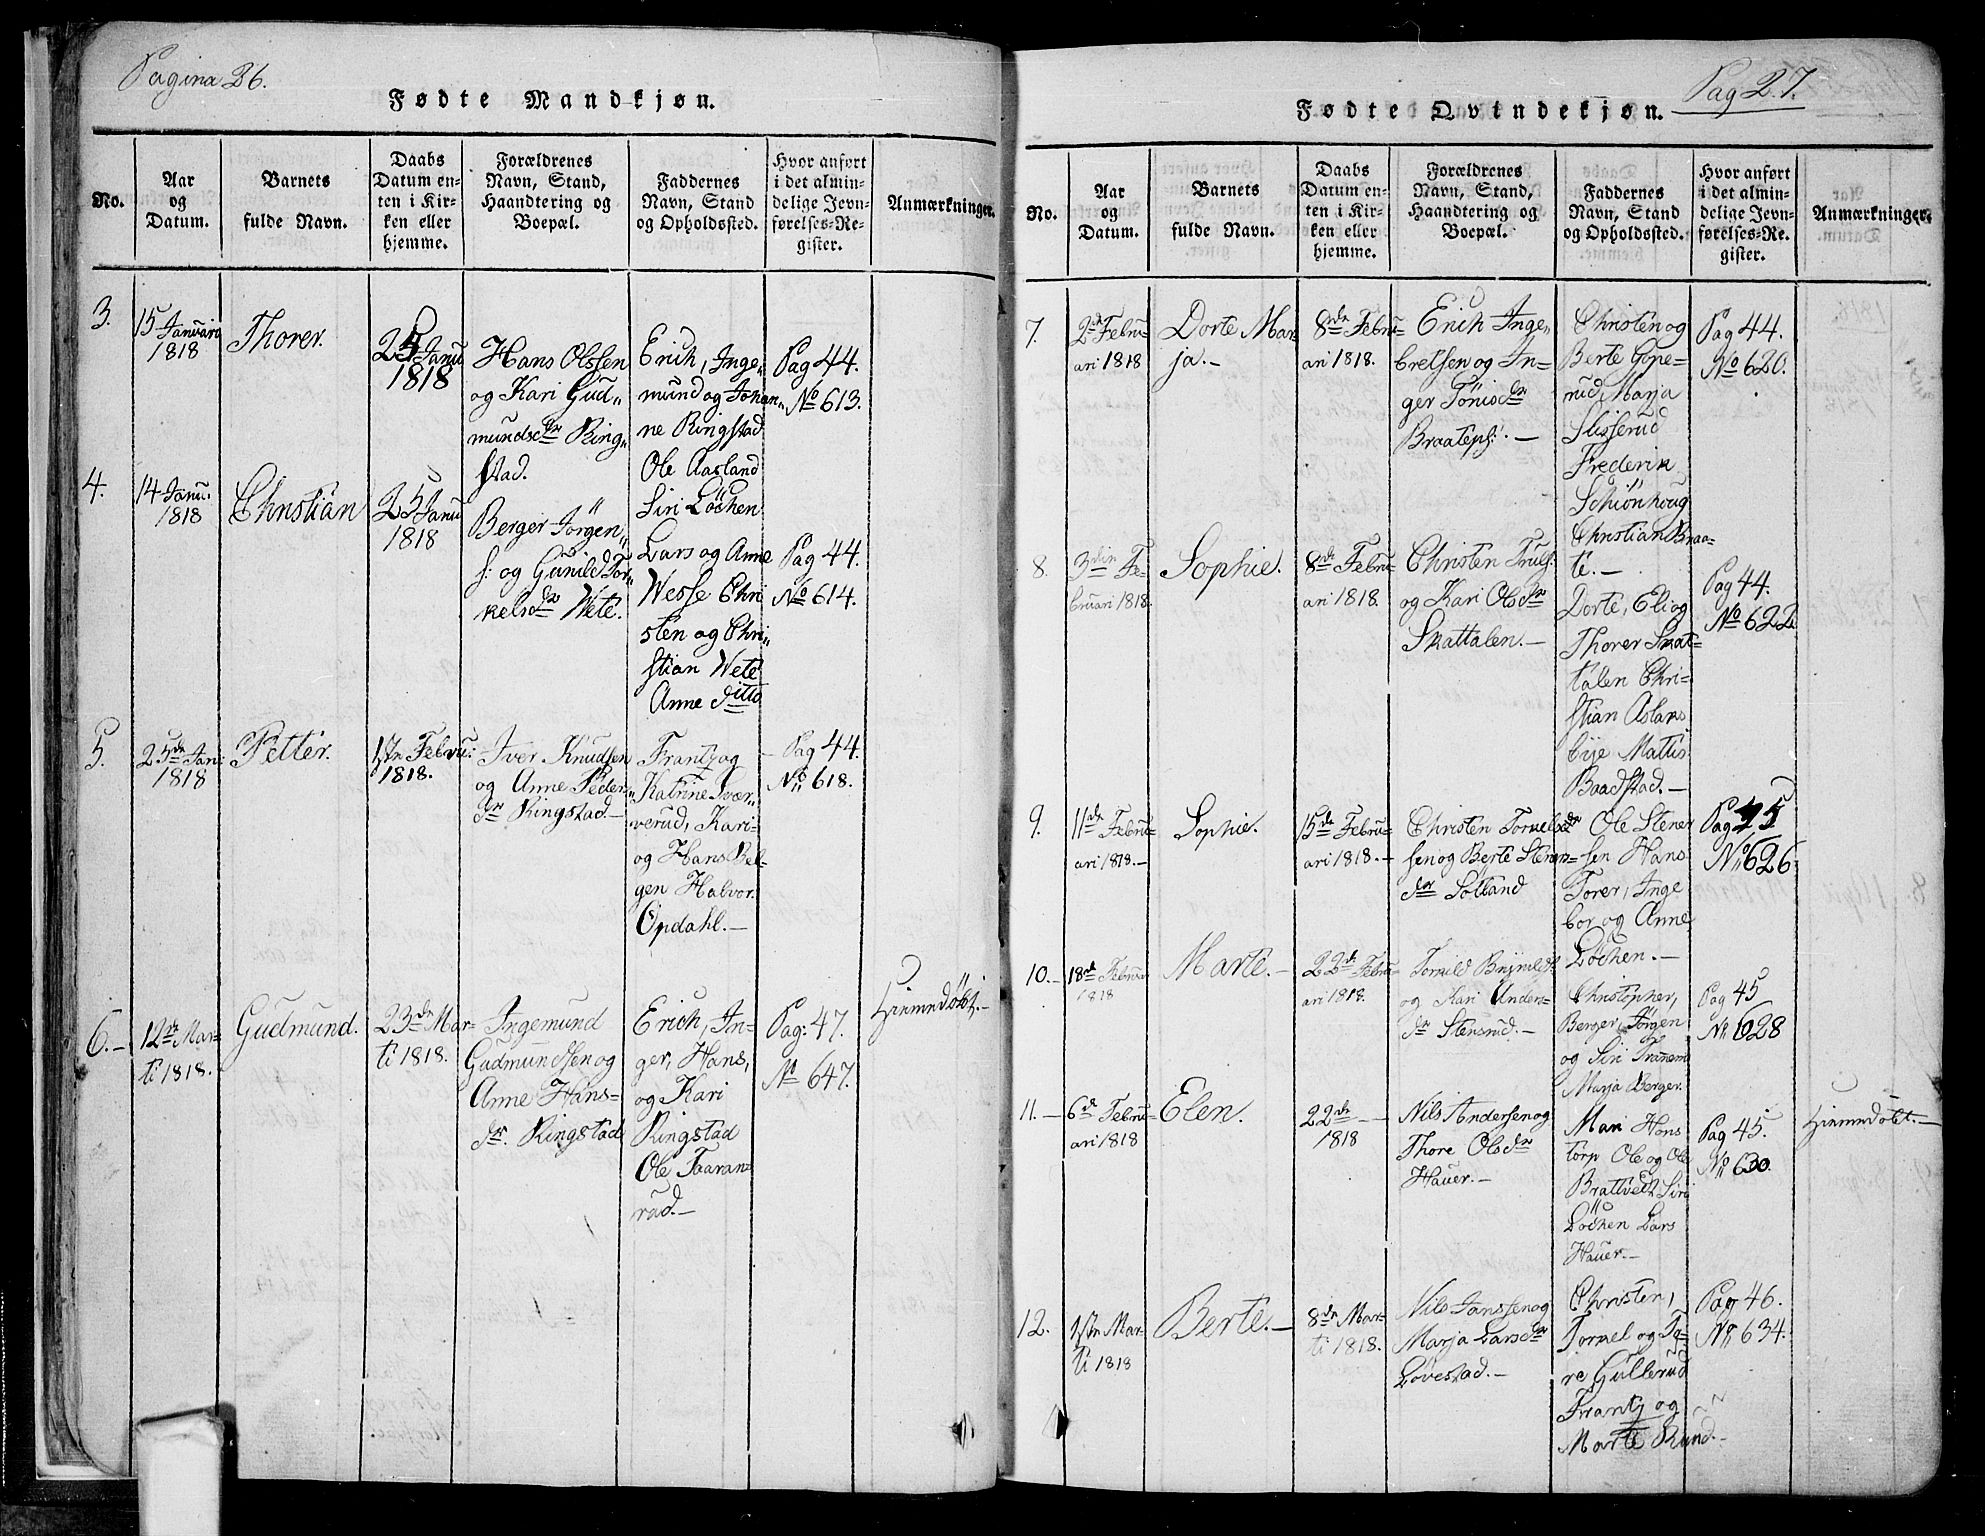 Pagina 26.
Fødte Mandkjøn.
No.
Aar
og
Datum.
Barnets
fulde Navn.
Daabs
Datum en-
ten i Kir-
ken eller
hjemme.
Forældrenes
Navn, Stand,
Haandtering og
Boepæl.
Faddernes
Navn, Stand
og Opholdssted.
Hvor anført
i det almin-
delige Jevn-
førelses-Re-
gister.
Anmærkninger.
3.
15 Januari
1818
Thorer.
25 Janu
1818
Hans Olssen
og Kari Gud„
mundsdr Ring„
stad.
Erich, Inge„
mund og Johan„
ne Ringstad
Ole Aasland
Siri Löchen
Pag 44.
No 613.
4.
14 Janu.
1818
Christian
25 Janu
1818
Berger Jörgen„
s: og Gunild Tor„
kelsdr Wete.
Lars og Anne
Wesse Chri
sten og Chri„
stian Wete
Anne ditto
Pag 44.
No 614.
5.
25de Jan:
1818
Petter.
1ste Febru:
1818.
Iver Knudsen
og Anne Peder„
dr Ringstad.-
Frantz og
Katrine Tvær„
verud, Kari-
og Hans Bel-
gen Halvor.
Opdahl.-
Pag 44.
No 618.
6.-
12te Mar-
ti 1818.
Gudmund.
23de Mar-
ti 1818.
Ingemund
Gudmundsen og
Anne Hans-
dr. Ringstad
Erich, In-
ger, Hans,
og Kari
Ringstad
Ole Taaran-
rud.-
Pag: 47.
No 647.
Hiemedöbt.-
Pag 27.
Fødte Qvindekjøn.
No.
Aar
og
Datum.
Barnets
fulde Navn.
Daabs
Datum en-
ten i Kir-
ken eller
hjemme.
Forældrenes
Navn, Stand,
Haandtering og
Boepæl.
Faddernes
Navn, Stand
og Opholdssted.
Hvor anført
i det almin-
delige Jevn-
førelses-Re-
gister.
Anmærkninger.
7.
2de Febru-
ari 1818
Dorte Mar
ja.-
8de Febru-
ari 1818.
Erich Inge-
bretsen og In-
ger Tönisdr
Braatepl:.-
Christen og
Berte Gope-
rud, Marja
Slisserud
Frederik
Schiönhoug
Christian Braa-
te.-
Pag 44.
No 620.
8.
3die Fe-
bruari 1818.
Sophie.
8de Febru-
ari 1818.
Christen Truls:
og Kari Olsdr
Skattalen.-
Dorte, Eli og
Thorer Skat-
talen Chri-
stian Aslaks
bye Mattis
Baadstad.-
Pag 44.
No 622
9.
11de Febru-
ari 1818.-
Sophie.
15de Febru-
ari 1818.-
Christen Torkels
sen og Berte Stener-
dr Sotland
Ole Stener
sen Hans
Torer, Inge
bor og Anne
Löchen.-
Pag 45
No 626
10.-
18de Februar
1818
Marte.-
22de Febru
ari 1818.
Torkild Brynilds:
og Kari Anders-
dr Stensrud.-
Christopher,
Berger, Jörgen
og Siri Tranem
Marja Berger.
Pag 45
No 628
11.-
6de Febru
ari 1818
Elen.
22de -
1818
Nils Andersen og
Thore Olsdr
Hauer.-
Mari Hons
torp Ole og Ole
Brattvedt, Siri
Löchen Lars
Hauer.-
Pag 45.
No 630.
Hiemedöbt.-
12.
1ste Mar-
ti 1818
Berte.-
8de Mar-
ti 1818.
Nils Janssen og
Marja Larsdr
Lövestad.-
Christen,
Torkel og To-
re Gullerud
Frantz og
Marte Rund.-
Pag 46.
No 634.